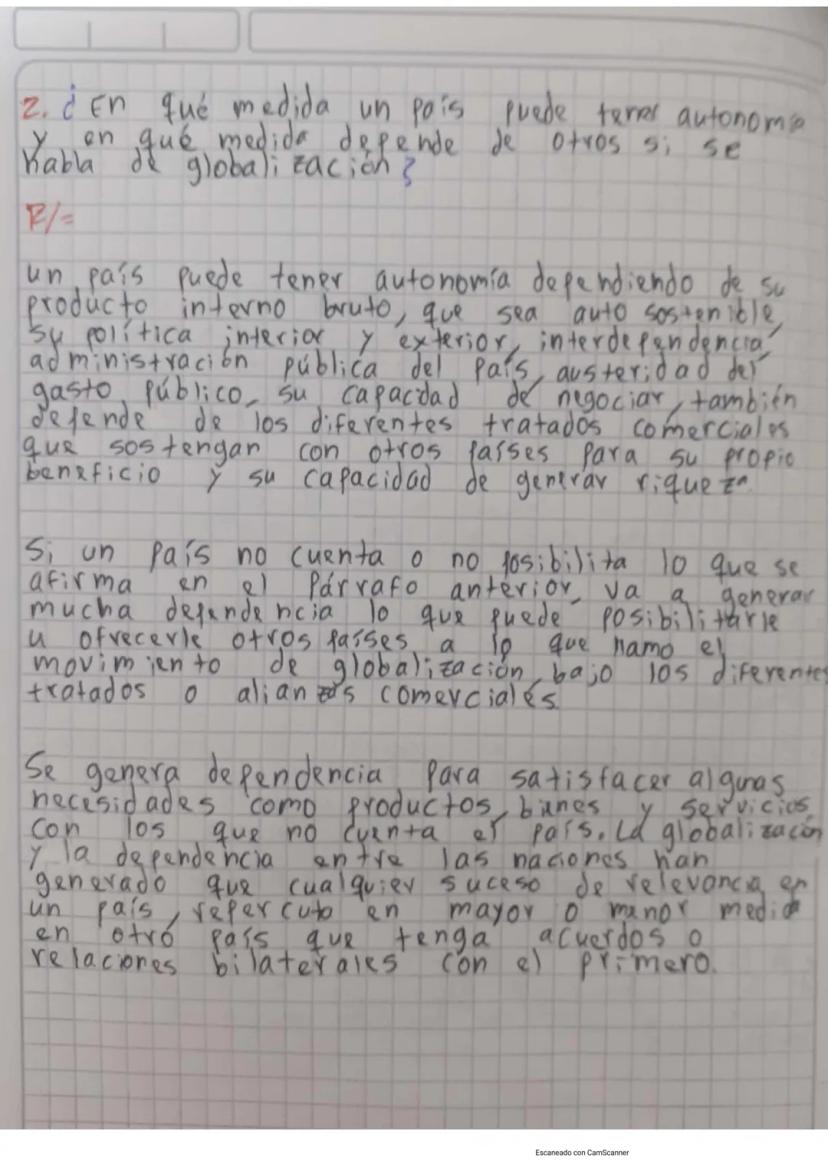 2. ¿En qué medida un país puede tener autonomía
y en qué medida depende de otros si se
habla de globalización?
R/=
un país puede tener autonomía dependiendo de su
producto interno bruto, que sea auto sostenible,
su política interior y exterior, interdependencia,
administración pública del país, austeridad del
gasto público, su capacidad de negociar, también
depende de los diferentes tratados comerciales
que sostengan con otros países para su propio
beneficio y su capacidad de generar riqueza
Si un país no cuenta o no posibilita lo que se
afirma en el párrafo anterior, va a generar
mucha dependencia lo que puede posibilitarle
u ofrecerle otros países a lo que llamo el
movimiento de globalización, bajo los diferentes
tratados o alianzas comerciales
Se genera dependencia para satisfacer algunas
necesidades como productos, bienes y servicios,
con los que no cuenta el país. La globalización
y la dependencia entre las naciones han
generado que cualquier suceso de relevancia en
un país, repercuta en mayor o menor medida
en otro país que tenga acuerdos o
relaciones bilaterales con el primero.
Escaneado con CamScanner